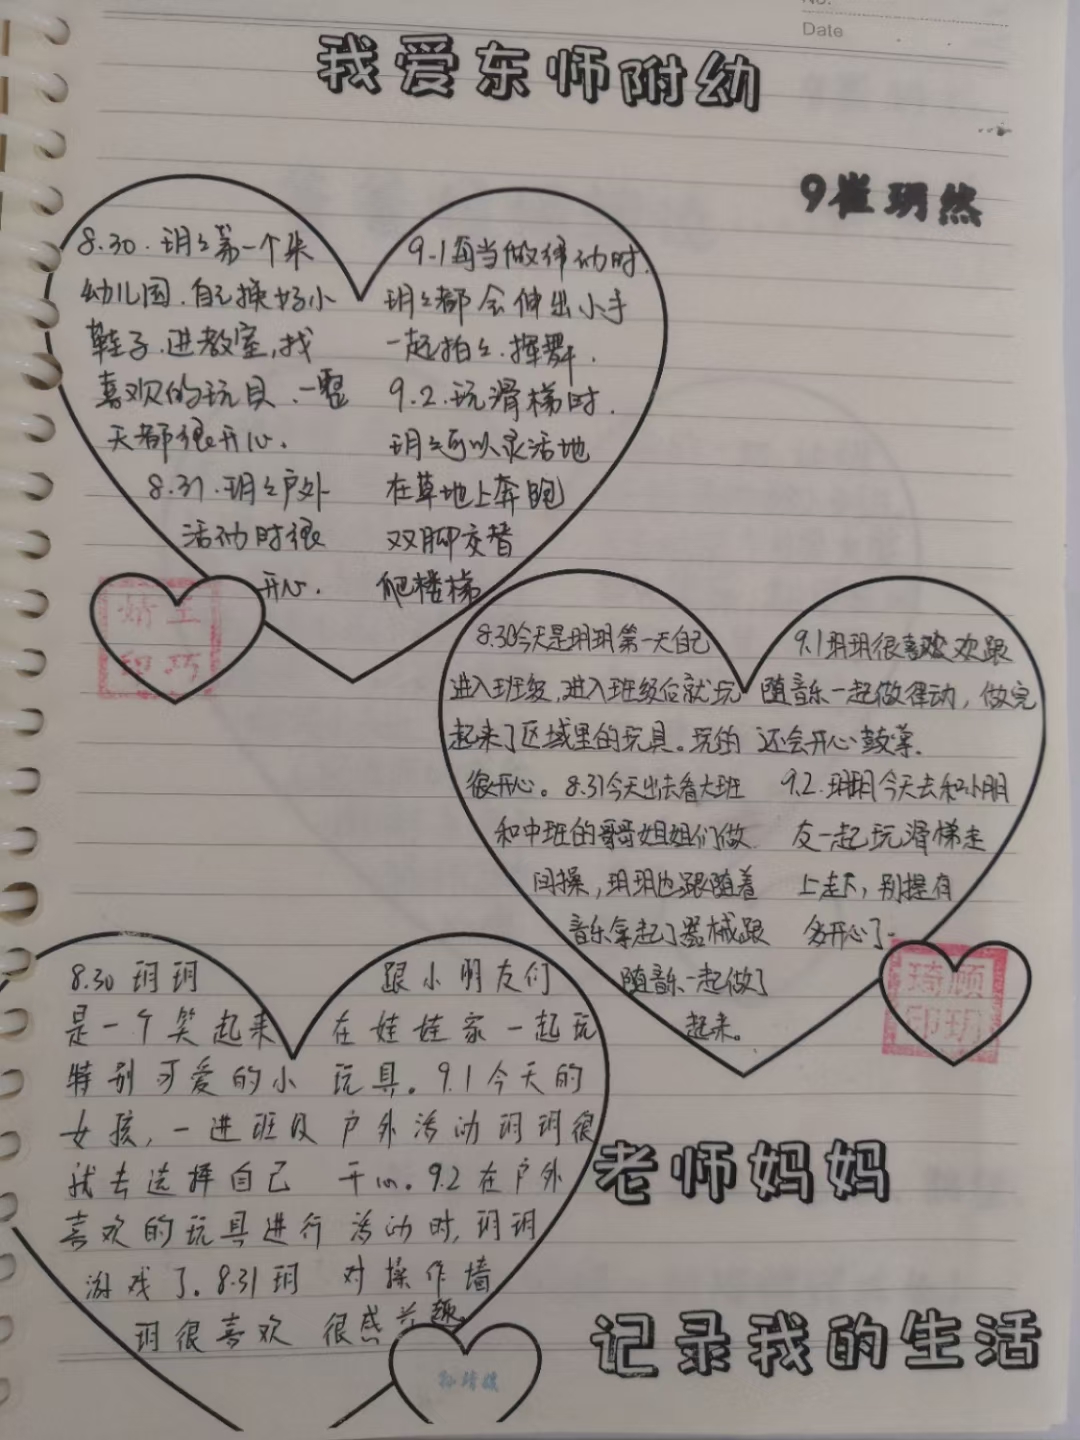 No.
Date
我爱东师附幼
9崔玥然
8.30.玥々第一个来
幼儿园.自己换好小
鞋子.进教室,找
喜欢的玩具.一整
天都很开心.
8.31.玥々户外
活动时很
开心.
9.1每当做律动时.
玥々都会伸出小手
一起拍々.挥舞.
9.2.玩滑梯时.
玥々可以灵活地
在草地上奔跑
双脚交替
爬楼梯
8.30今天是玥玥第一天自己
进入班级,进入班级后就玩
起来了区域里的玩具。玩的
很开心。8.31今天出去看大班
和中班的哥哥姐姐们做
间操,玥玥也跟随着
音乐拿起了器械跟
随音乐一起做了
起来。
9.1玥玥很喜欢欢跟
随音乐一起做律动,做完
还会开心鼓掌.
9.2.玥玥今天去和小朋
友一起玩滑梯走
上走下,别提有
多开心了.
琦顾
印玥
8.30 玥玥
是一个笑起来
特别可爱的小
女孩,一进班级
就去选择自己
喜欢的玩具进行
游戏了。8.31玥
玥很喜欢
跟小朋友们
在娃娃家一起玩
玩具。9.1今天的
户外活动玥玥很
开心。9.2在户外
活动时,玥玥
对操作墙
很感兴趣
老师妈妈
记录我的生活